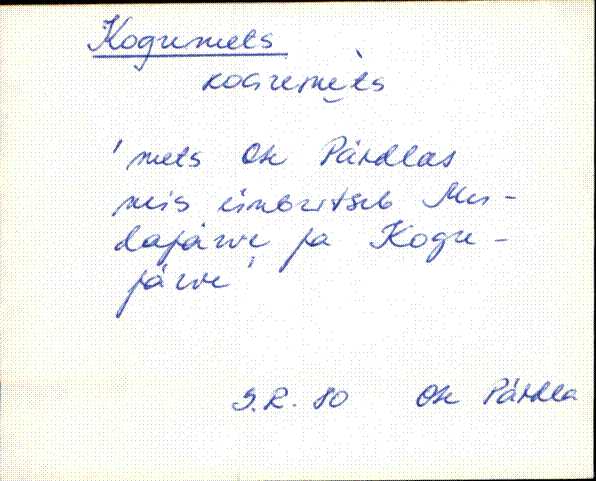 Kogremets
koGremèts
'mets Ote Pärdlas
mis ümbritseb Mu-
dajärve ja Kogre-
järve'
S.R. 80 Ote Pärdla